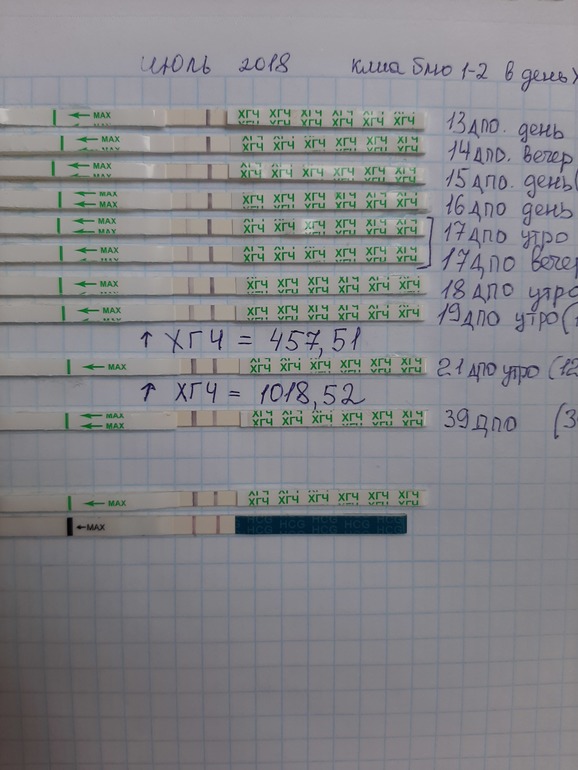 ИЮЛЬ 2018 клиа био 1-2 в день
← MAX ХГЧ ХГЧ ХГЧ ХГЧ ХГЧ ХГЧ 13 дпо. день
← MAX ХГЧ ХГЧ ХГЧ ХГЧ ХГЧ ХГЧ 14 дпо. вечер
← MAX ХГЧ ХГЧ ХГЧ ХГЧ ХГЧ ХГЧ 15 дпо. день(
← MAX ХГЧ ХГЧ ХГЧ ХГЧ ХГЧ ХГЧ 16 дпо день
← MAX ХГЧ ХГЧ ХГЧ ХГЧ ХГЧ ХГЧ 17 дпо утро
← MAX ХГЧ ХГЧ ХГЧ ХГЧ ХГЧ ХГЧ 17 дпо вечер
← MAX ХГЧ ХГЧ ХГЧ ХГЧ ХГЧ ХГЧ 18 дпо утро
← MAX ХГЧ ХГЧ ХГЧ ХГЧ ХГЧ ХГЧ 19 дпо утро(
↑ ХГЧ = 457,51
← MAX ХГЧ ХГЧ ХГЧ ХГЧ ХГЧ ХГЧ 21 дпо утро (12
↑ ХГЧ = 1018,52
← MAX ХГЧ ХГЧ ХГЧ ХГЧ ХГЧ ХГЧ 39 дпо (3
← MAX ХГЧ ХГЧ ХГЧ ХГЧ ХГЧ ХГЧ
← MAX HCG HCG HCG HCG HCG